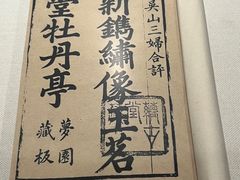 吳山三婦合評
新鐫繡像玉茗
堂牡丹亭
夢園
藏板